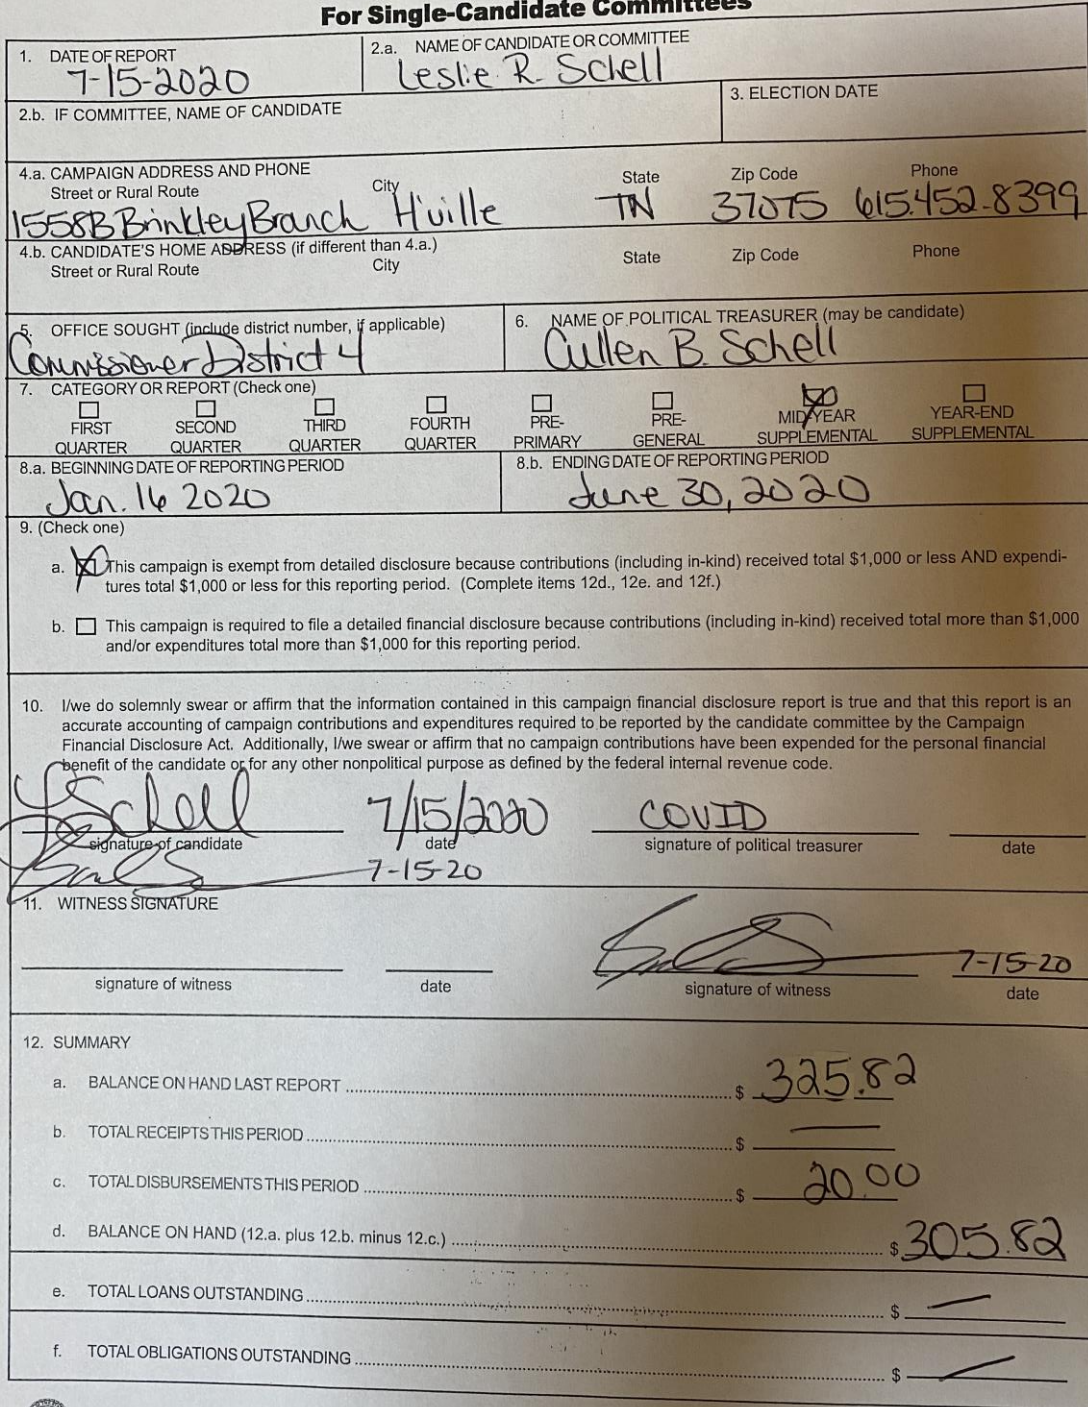 For Single-Candidate Committees
1. DATE OF REPORT
7-15-2020
2.a. NAME OF CANDIDATE OR COMMITTEE
Leslie R. Schell
2.b. IF COMMITTEE, NAME OF CANDIDATE
3. ELECTION DATE
4.a. CAMPAIGN ADDRESS AND PHONE
Street or Rural Route City State Zip Code Phone
1558B Brinkley Branch H'ville TN 37075 615.452-8399
4.b. CANDIDATE'S HOME ADDRESS (if different than 4.a.)
Street or Rural Route City State Zip Code Phone
5. OFFICE SOUGHT (include district number, if applicable)
Commissioner District 4
6. NAME OF POLITICAL TREASURER (may be candidate)
Cullen B. Schell
7. CATEGORY OR REPORT (Check one)
FIRST SECOND THIRD FOURTH PRE- PRE- MID-YEAR YEAR-END
QUARTER QUARTER QUARTER QUARTER PRIMARY GENERAL SUPPLEMENTAL SUPPLEMENTAL
8.a. BEGINNING DATE OF REPORTING PERIOD
Jan. 16 2020
8.b. ENDING DATE OF REPORTING PERIOD
June 30, 2020
9. (Check one)
a. This campaign is exempt from detailed disclosure because contributions (including in-kind) received total $1,000 or less AND expendi-
tures total $1,000 or less for this reporting period. (Complete items 12d., 12e. and 12f.)
b. This campaign is required to file a detailed financial disclosure because contributions (including in-kind) received total more than $1,000
and/or expenditures total more than $1,000 for this reporting period.
10. I/we do solemnly swear or affirm that the information contained in this campaign financial disclosure report is true and that this report is an
accurate accounting of campaign contributions and expenditures required to be reported by the candidate committee by the Campaign
Financial Disclosure Act. Additionally, I/we swear or affirm that no campaign contributions have been expended for the personal financial
benefit of the candidate or for any other nonpolitical purpose as defined by the federal internal revenue code.
LSchell 7/15/2020 COVID
signature of candidate date signature of political treasurer date
7-15-20
11. WITNESS SIGNATURE
7-15-20
signature of witness date signature of witness date
12. SUMMARY
a. BALANCE ON HAND LAST REPORT $ 325.82
b. TOTAL RECEIPTS THIS PERIOD $ —
c. TOTAL DISBURSEMENTS THIS PERIOD $ 20.00
d. BALANCE ON HAND (12.a. plus 12.b. minus 12.c.) $ 305.82
e. TOTAL LOANS OUTSTANDING $ —
f. TOTAL OBLIGATIONS OUTSTANDING $ —